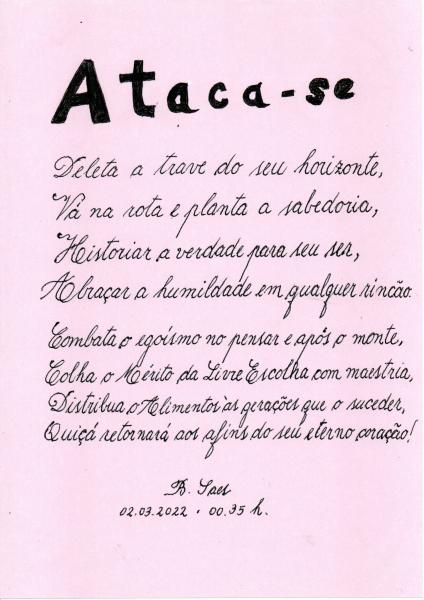 Ataca-se
Deleta a trave do seu horizonte,
Vá na rota e planta a sabedoria,
Historiar a verdade para seu ser,
Abraçar a humildade em qualquer rincão.
Combata o egoísmo no pensar e após o monte,
Colha o Mérito da Livre Escolha com maestria,
Distribua o Alimentos às gerações que o suceder,
Quiçá retornará aos afins do seu eterno coração!
B. Saes
02.03.2022 . 00.35 h.